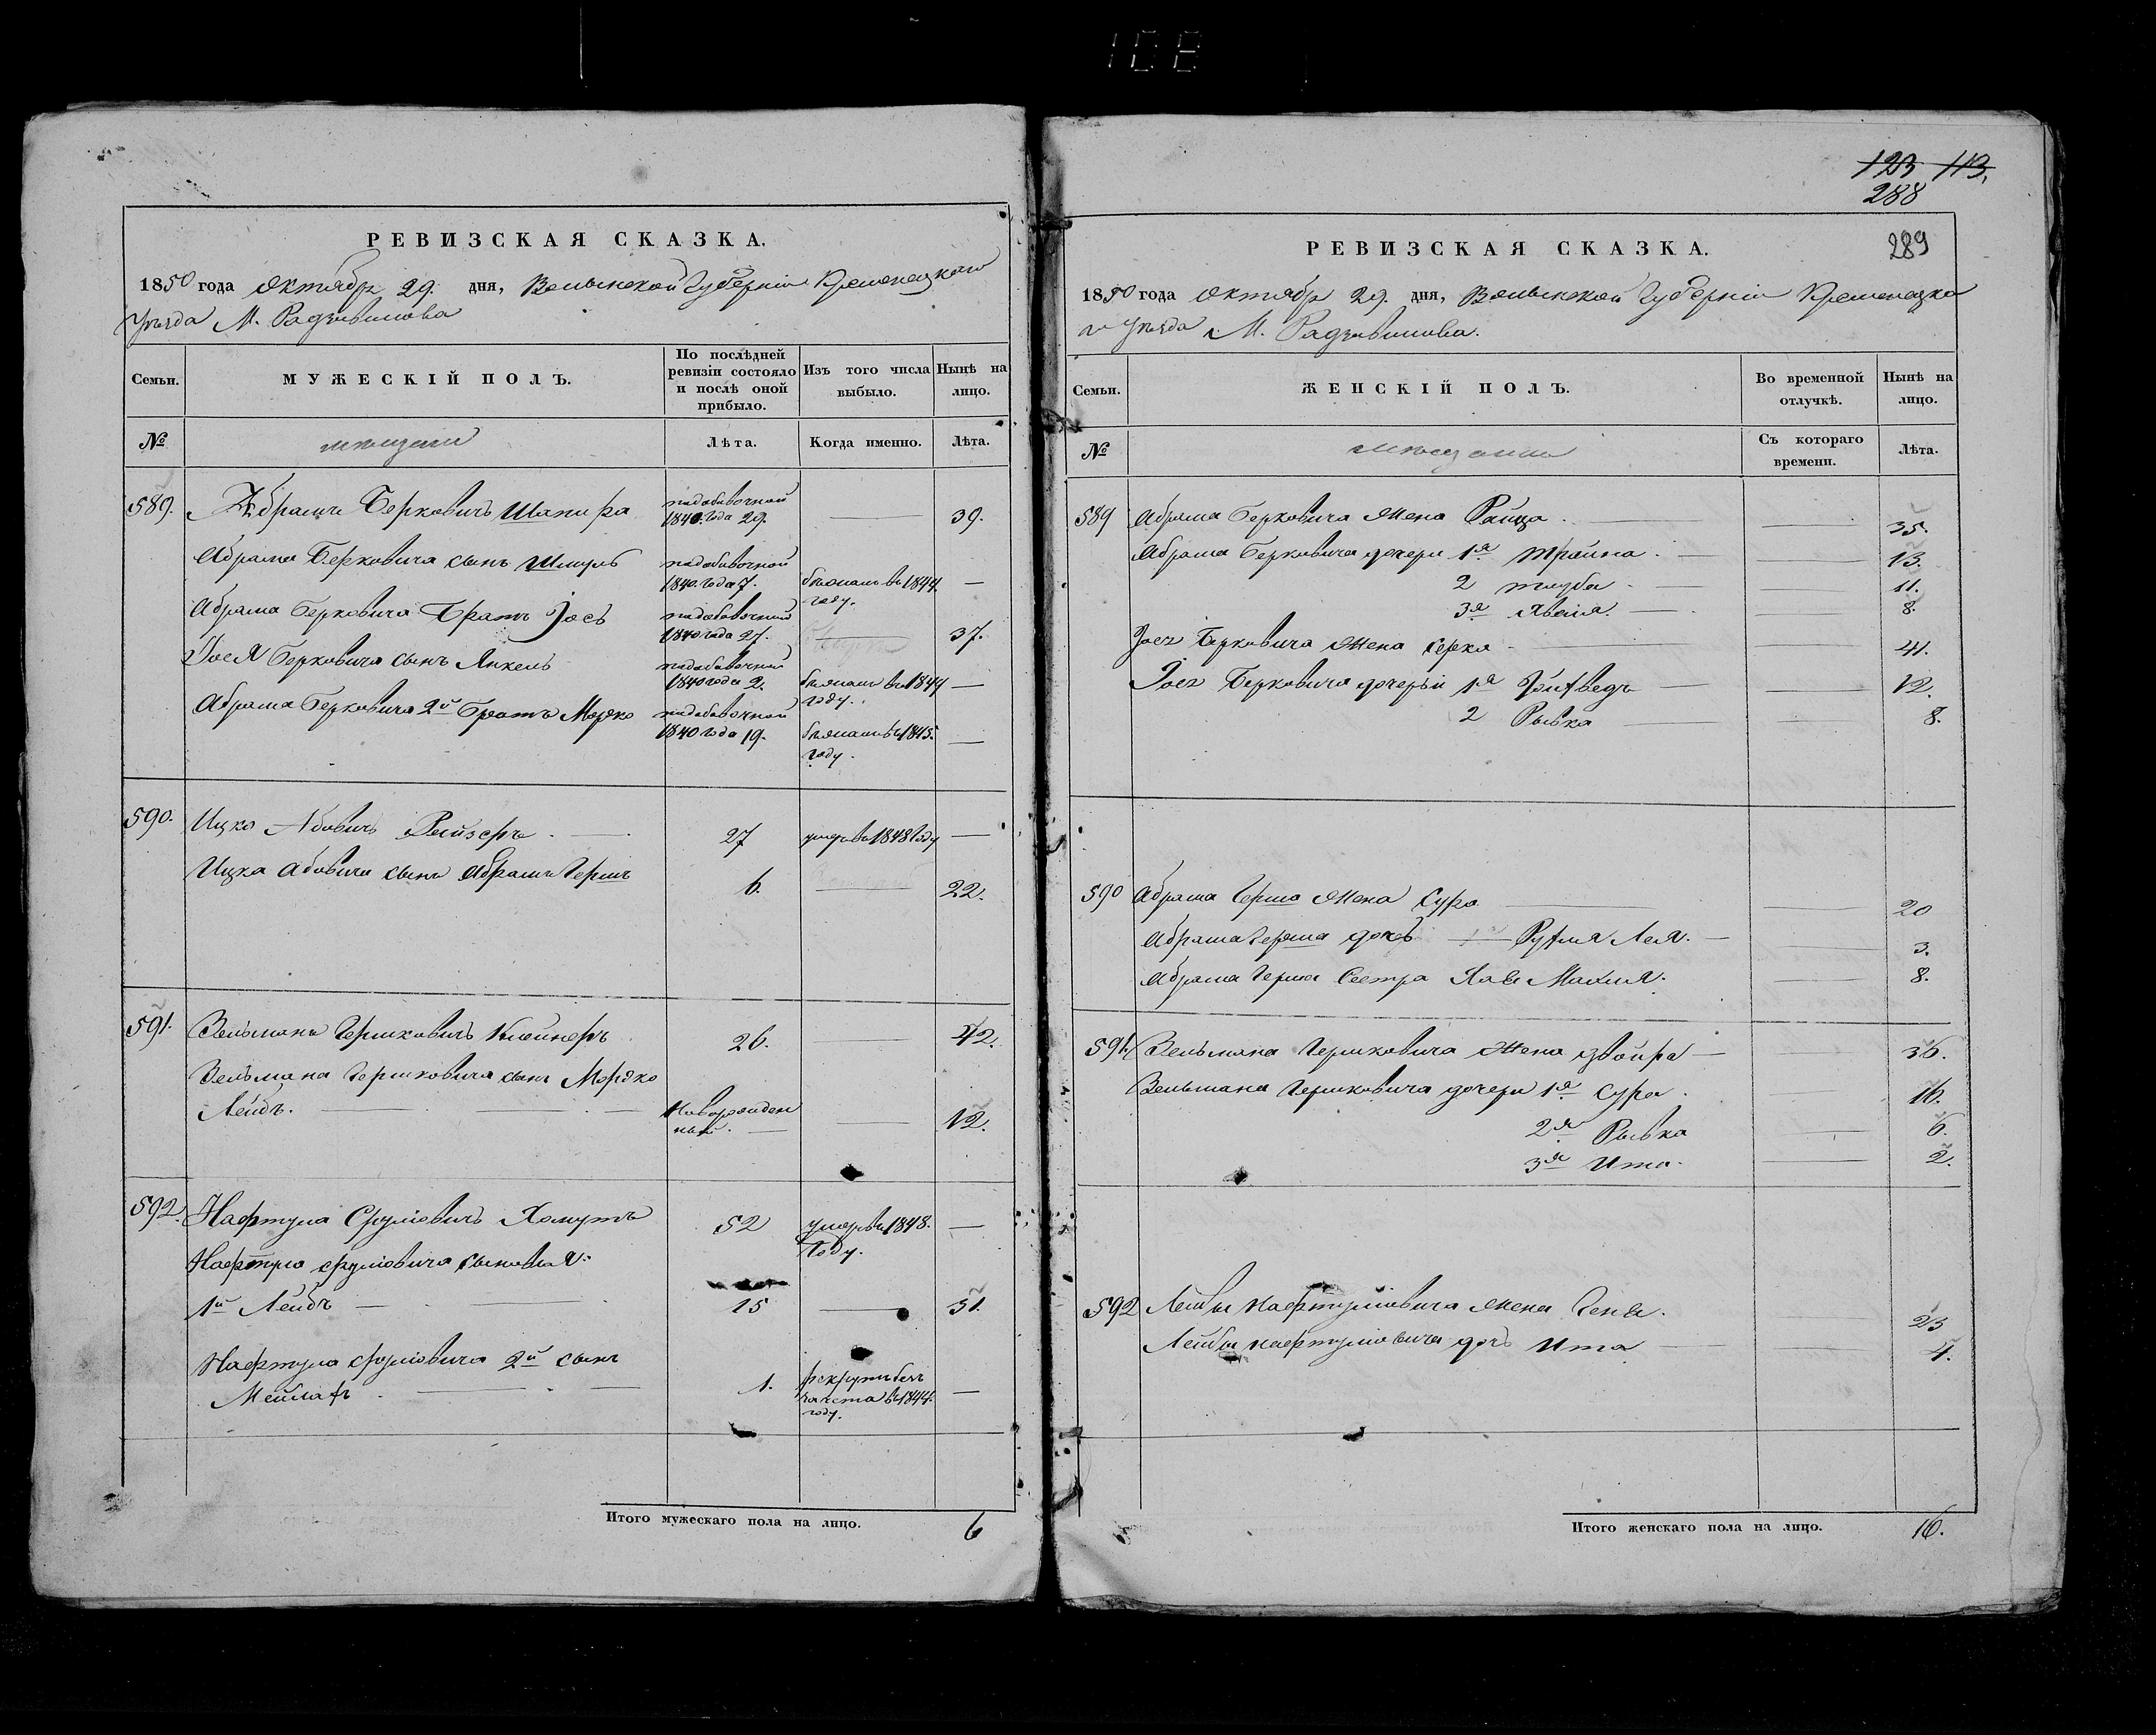 108
РЕВИЗСКАЯ СКАЗКА.
1850 года Октября 29. дня, Волынской Губерніи Кременецкаго
Уѣзда М. Радзивилова
Семьи.
МУЖЕСКІЙ ПОЛЪ.
По послѣдней ревизіи состояло и послѣ оной прибыло.
Изъ того числа выбыло.
Нынѣ на лицо.
№
мѣщане
Лѣта.
Когда именно.
Лѣта.
589. Абрамъ Берковичъ Шапира по добавочной 1840. года 29. — 39.
Абрама Берковича сынъ Шмуль по добавочной 1840. года 7. бѣжалъ въ 1844 году. —
Абрама Берковича Братъ Іось по добавочной 1840 года 27. — 37.
Іося Берковича сынъ Янкель по добавочной 1840 года 2. бѣжалъ въ 1844 году. —
Абрама Берковича 2й Братъ Мордко по добавочной 1840 года 19. бѣжалъ въ 1845. году. —
590. Ицко Абовичъ Рейзеръ 27 умеръ въ 1848 году —
Ицка Абовича сынъ Абрамъ Гершъ 6. — 22.
591. Зельманъ Гершковичъ Клейнеръ 26. — 42.
Зельмана Гершковича сынъ Мордко
Лейбъ. — новорожденный. — 12.
592. Нафтула Сруліовичъ Хомутъ 52 умеръ въ 1848. Году. —
Нафтула Сруліовича сыновья:
1й Лейбъ — 15 — 31.
Нафтула Сруліовича 2й сынъ
Мейлахъ — 1. рекрутъ безъ зачета въ 1844. году. —
Итого мужескаго пола на лицо. 6
123 113.
288
289
РЕВИЗСКАЯ СКАЗКА.
1850 года Октября 29. дня, Волынской Губерніи Кременецка
го Уѣзда М. Радзивилова.
Семьи.
ЖЕНСКІЙ ПОЛЪ.
Во временной отлучкѣ.
Нынѣ на лицо.
№
мѣщане
Съ котораго времени.
Лѣта.
589 Абрама Берковича Жена Райца. — 35.
Абрама Берковича дочери 1я Трайна. — 13.
2 — 11.
3я — 8.
Іося Берковича Жена Серка — 41.
Іося Берковича дочерьи 1я — 12.
2 Рывка — 8.
590 Абрама Герша Жена Сура — 20
Абрама Герша дочь — Рухля Лея. — 3.
Абрама Герша Сестра Хая Малия. — 8.
591. Зельмана Гершковича Жена Двойра — 36.
Зельмана Гершковича дочери 1я Сура. — 16.
2я Рывка — 6.
3я Ита. — 2.
592 Лейбы Нафтуліовича Жена Геня. — 23
Лейбы Нафтуліовича дочь Ита — 4.
Итого женскаго пола на лицо. 16.